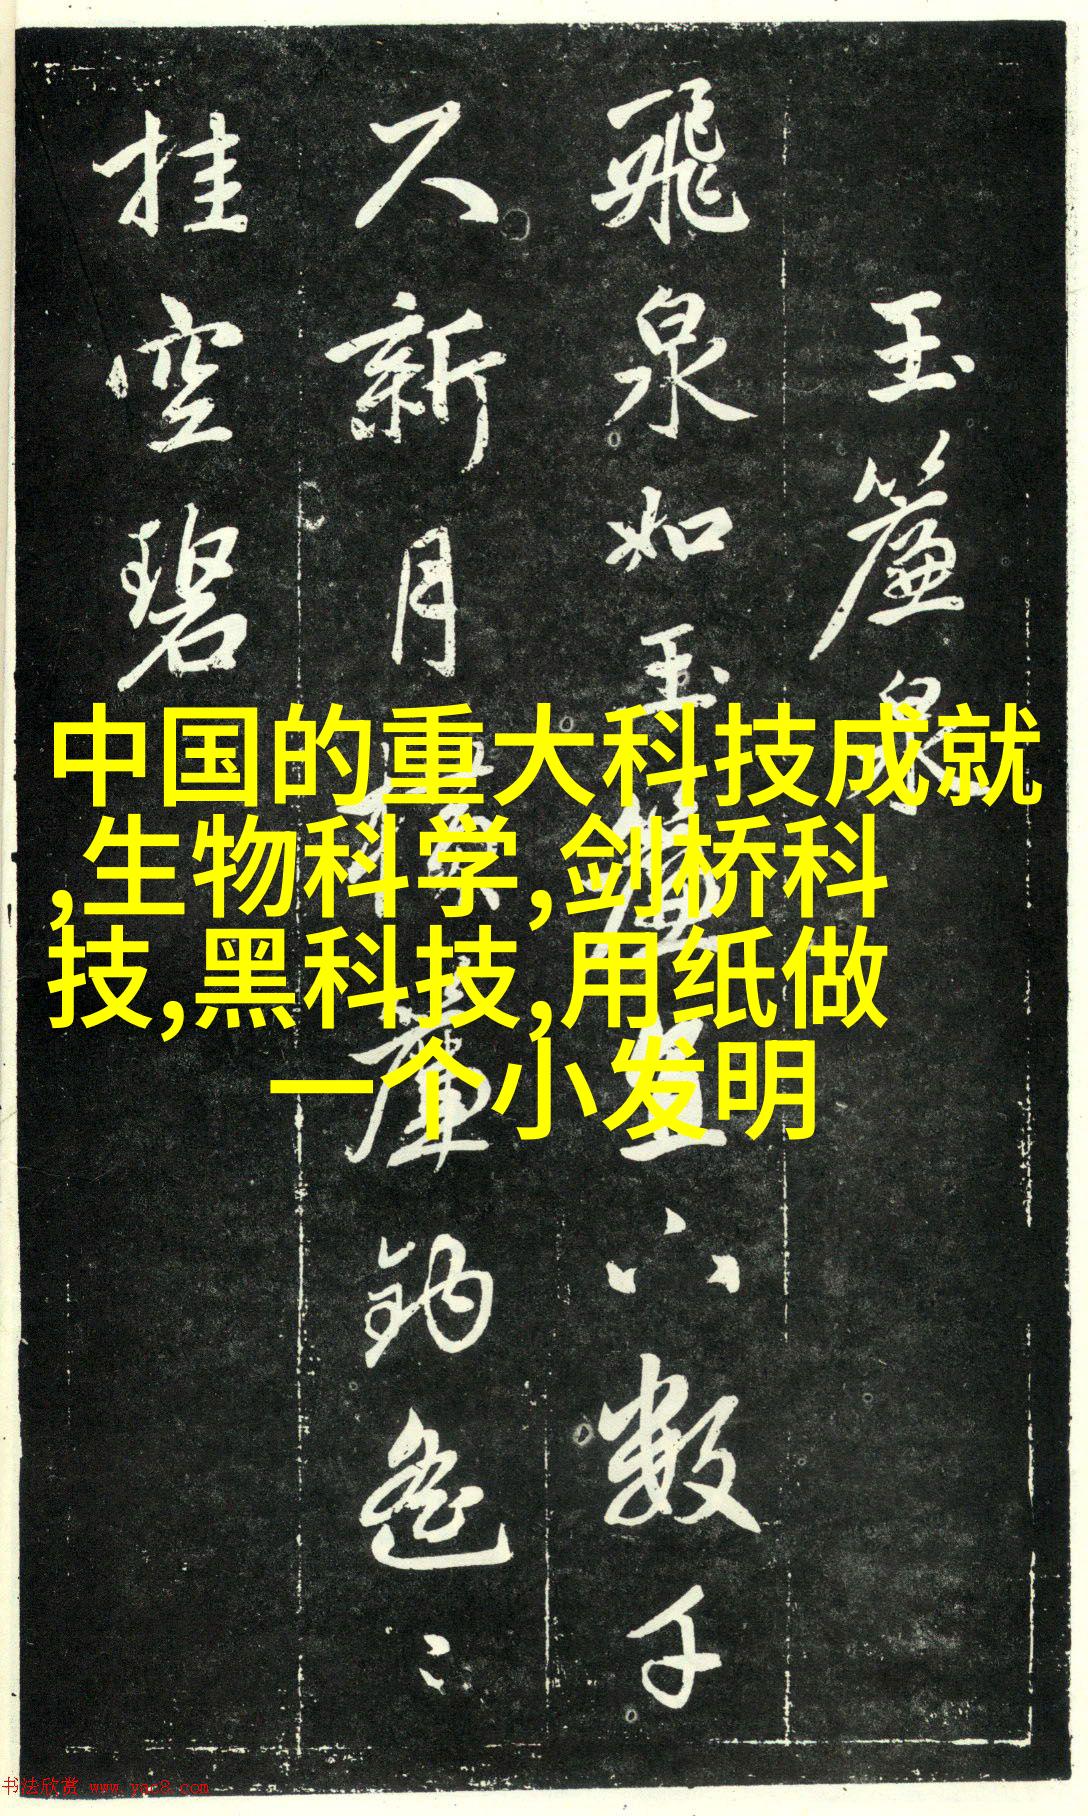 玉簾泉
飛泉如玉簾直下數千
尺新月橫簾鈎遙遙
挂空碧
中国的重大科技成就
,生物科学,剑桥科
技,黑科技,用纸做
一个小发明
书法欣赏 www.yac8.com